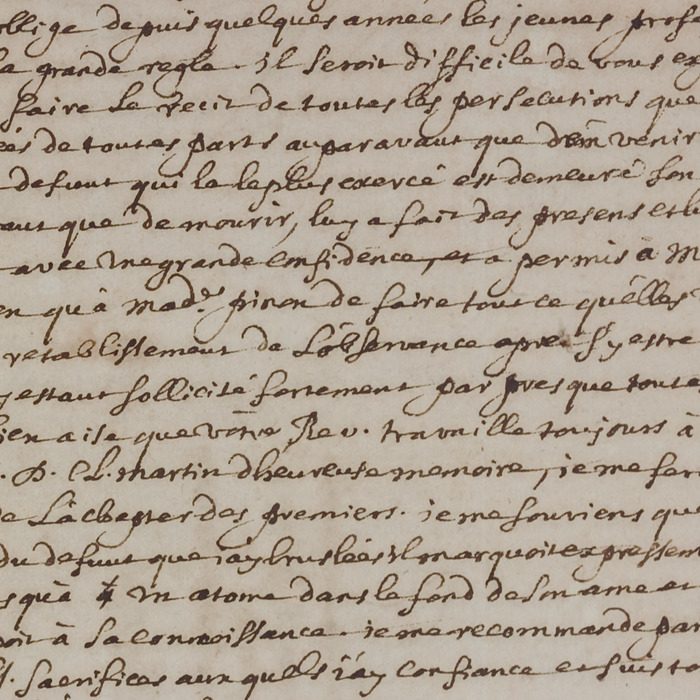 ollige depuis quelques années les jeunes profe
la grande regle. Il seroit difficile de vous ex
faire le recit de toutes les persecutions que
ées de toutes parts auparavant que d'en venir
defunt qui la le plus exercé est demeuré son
aut que de mourir, luy a fait des presens et l
avec une grande confidence, et a permis a M
en qu'à mad.e pinon de faire tout ce qu'elles
retablissement de L'observance apres s'y estre
y estant sollicité fortement par presque toute
bien aise que votre Rev. travaille toujours à
. D. Cl. martin d'heureuse memoire, je me fer
de L'achepter des premiers. je me souviens que
du defunt que j'ay bruslées Il marquoit expressem
squ'à un atome dans le fond de son ame et
oit à sa connoissance. je me recommande par
st. sacrifices aux quels j'ay confiance et suis to